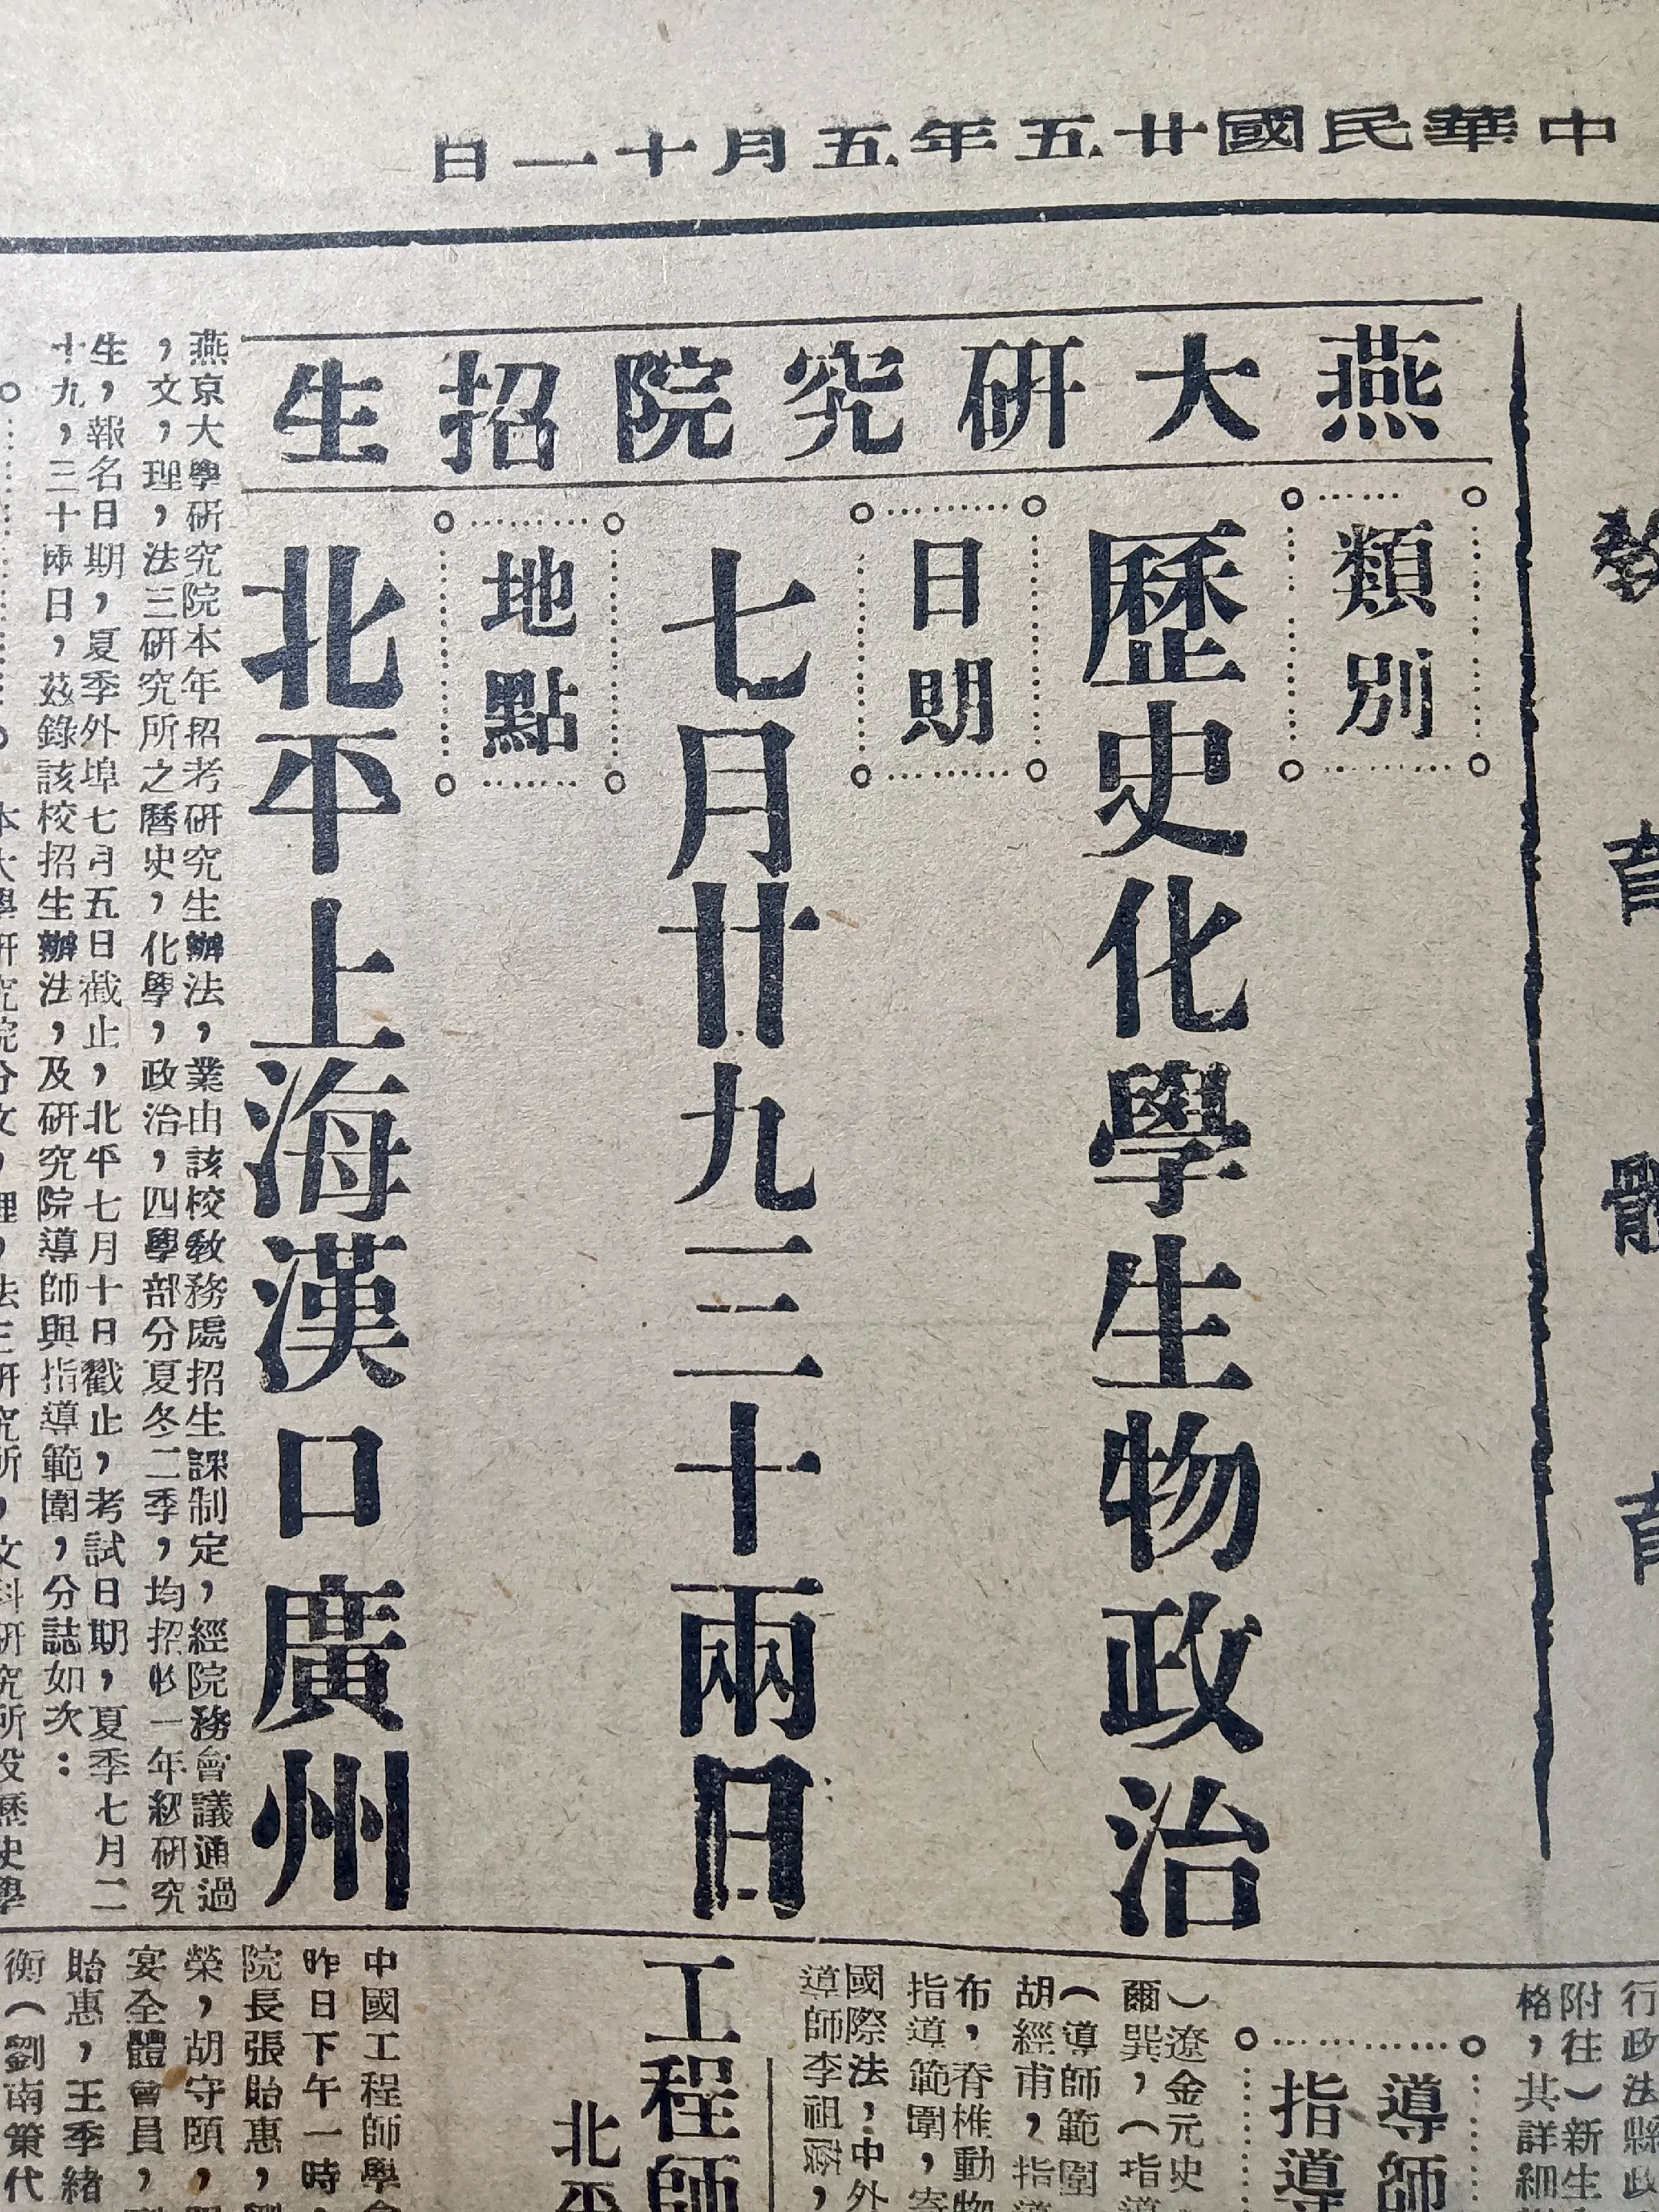 中華民國廿五年五月十一日
教育體育
燕大研究院招生
類別
歷史化學生物政治
日期
七月廿九三十兩日
地點
北平上海漢口廣州
燕京大學研究院本年招考研究生辦法，業由該校教務處招生課制定，經院務會議通過
，文，理，法三研究所之曆史，化學，政治，四學部分夏冬二季，均招收一年級研究
生，報名日期，夏季外埠七月五日截止，北平七月十日截止，考試日期，夏季七月二
十九，三十兩日，茲錄該校招生辦法，及研究院導師與指導範圍，分誌如次：
本大學研究院分文，理，法三研究所，文科研究所設歷史學
行政法縣政
附往）新生
格，其詳細
導師
指導
）遼金元史
爾巽，（指導
（導師範圍
胡經甫，指導
布，脊椎動物
指導範圍，寄
國際法，中外
導師李祖蔭，
工程師
北平
中國工程師學會
昨日下午一時，
院長張貽惠，劉
榮，胡守頤，
宴全體會員，
貽惠，王季緒
衡（劉南策代